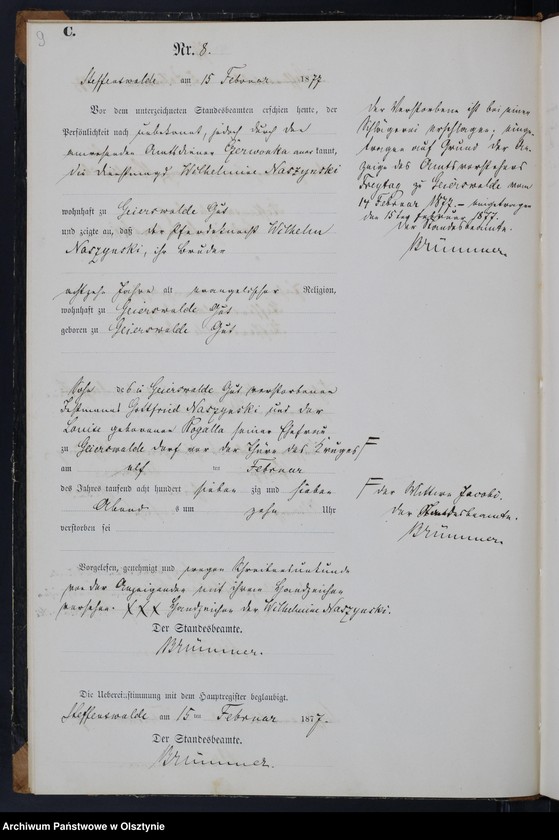 9
C.
Nr. 8.
Steffenswalde am 15 Februar 1877
Vor dem unterzeichneten Standesbeamten erschien heute, der
Persönlichkeit nach unbekannt, jedoch durch den
anwesenden Amtsdiener Czerwonka anerkannt,
die Dienstmagd Wilhelmine Naszynski
wohnhaft zu Geierswalde Gut
und zeigte an, daß der Pferdeknecht Wilhelm
Naszynski, ihr Bruder
achtzehn Jahre alt evangelischer Religion,
wohnhaft zu Geierswalde Gut
geboren zu Geierswalde Gut
Sohn des zu Geierswalde Gut verstorbenen
Instmanns Gottfried Naszynski und der
Louise geborenen Rogalla seiner Ehefrau
zu Geierswalde Dorf vor der Thüre des Kruges
am elf ten Februar
des Jahres tausend acht hundert sieben zig und sieben
Abends um zehn Uhr
verstorben sei
Vorgelesen, genehmigt und wegen Schreibensunkunde
von der Anzeigenden mit ihrem Handzeichen
versehen. XXX Handzeichen der Wilhelmine Naszynski.
Der Standesbeamte.
Brümmer.
Die Uebereinstimmung mit dem Hauptregister beglaubigt.
Steffenswalde am 15 ten Februar 1877.
Der Standesbeamte.
Brümmer.
Der Verstorbene ist bei einer
Schlägerei erschlagen; einge-
tragen auf Grund der An-
zeige des Amtsvorstehers
Freytag zu Geierswalde vom
14 Februar 1877. – eingetragen
den 15ten Februar 1877.
Der Standesbeamte.
Brümmer.
der Wittwe Jacobi.
Der Standesbeamte.
Brümmer.
Archiwum Państwowe w Olsztynie